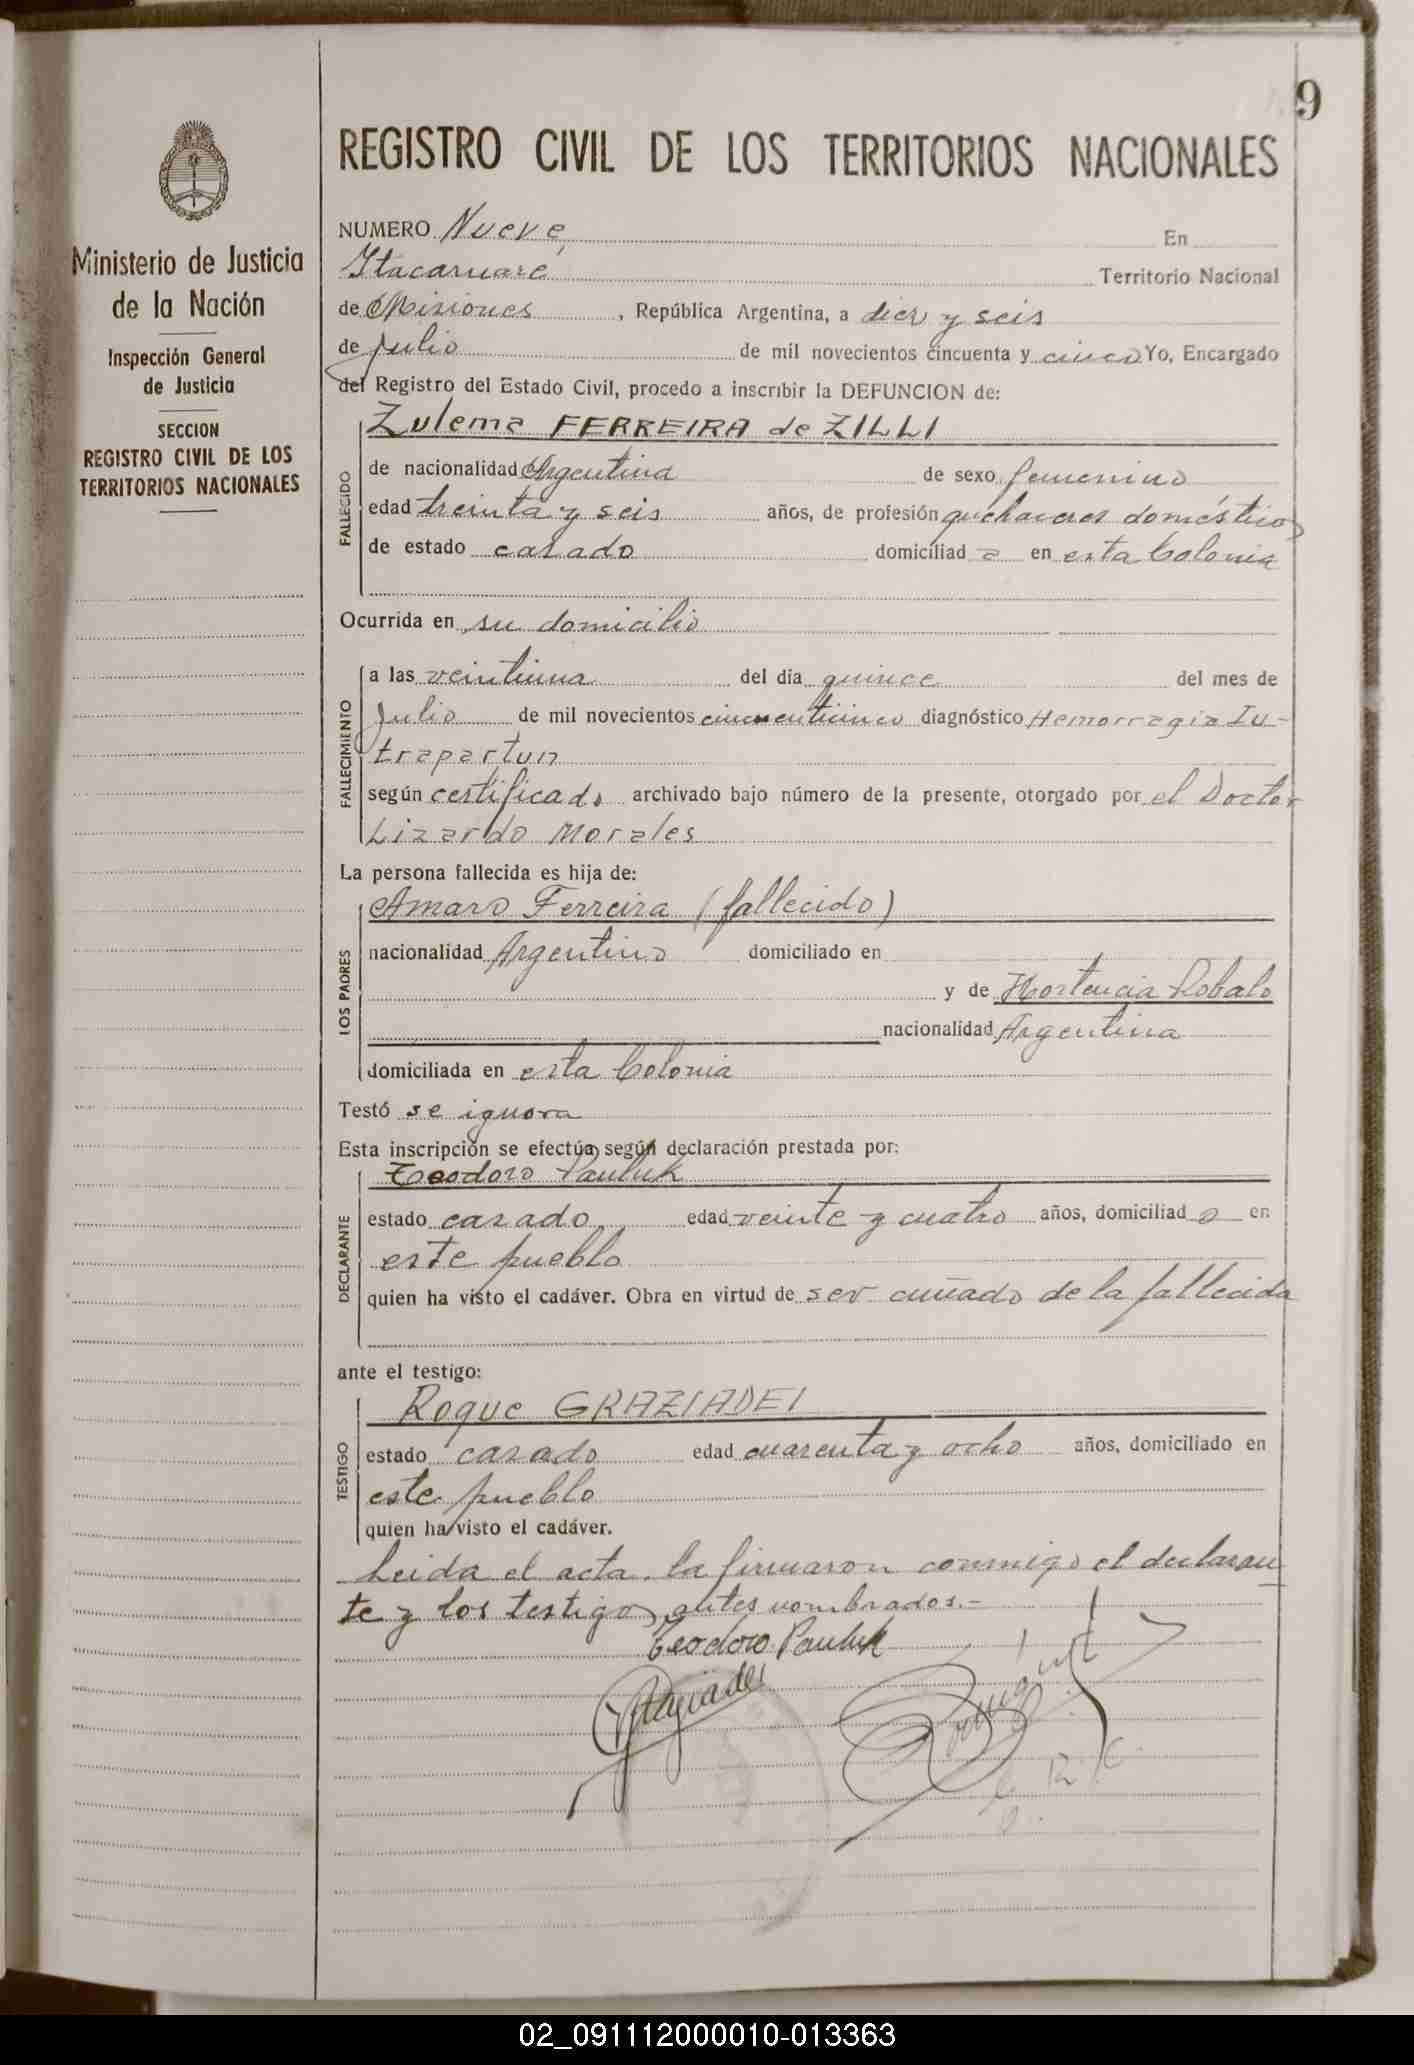 9
REGISTRO CIVIL DE LOS TERRITORIOS NACIONALES
Ministerio de Justicia
de la Nación
Inspección General
de Justicia
SECCION
REGISTRO CIVIL DE LOS
TERRITORIOS NACIONALES
NUMERO Nueve En
Itacaruaré Territorio Nacional
de Misiones , República Argentina, a diez y seis
de Julio de mil novecientos cincuenta y cinco Yo, Encargado
del Registro del Estado Civil, procedo a inscribir la DEFUNCION de:
FALLECIDO
Zulema FERREIRA de ZILLI
de nacionalidad Argentina de sexo femenino
edad treinta y seis años, de profesión quehaceres domésticos
de estado casado domiciliad a en esta Colonia
Ocurrida en su domicilio
FALLECIMIENTO
a las veintiuna del dia quince del mes de
Julio de mil novecientos cincuenticinco diagnóstico Hemorragia In-
trapartun
según certificado archivado bajo número de la presente, otorgado por el Doctor
Lizardo Morales
La persona fallecida es hija de:
LOS PADRES
Amaro Ferreira (fallecido)
nacionalidad Argentino domiciliado en
y de Hortencia Robalo
nacionalidad Argentina
domiciliada en esta Colonia
Testó se ignora
Esta inscripción se efectúa según declaración prestada por:
DECLARANTE
Teodoro Pauluk
estado casado edad veinte y cuatro años, domiciliad o en
este pueblo
quien ha visto el cadáver. Obra en virtud de ser cuñado de la fallecida
ante el testigo:
TESTIGO
Roque GRAZIADEI
estado casado edad cuarenta y ocho años, domiciliado en
este pueblo
quien ha visto el cadáver.
Leida el acta, la firmaron conmigo el declaran-
te y los testigos antes nombrados.-
Teodoro Pauluk
Graziadei
02_091112000010-013363